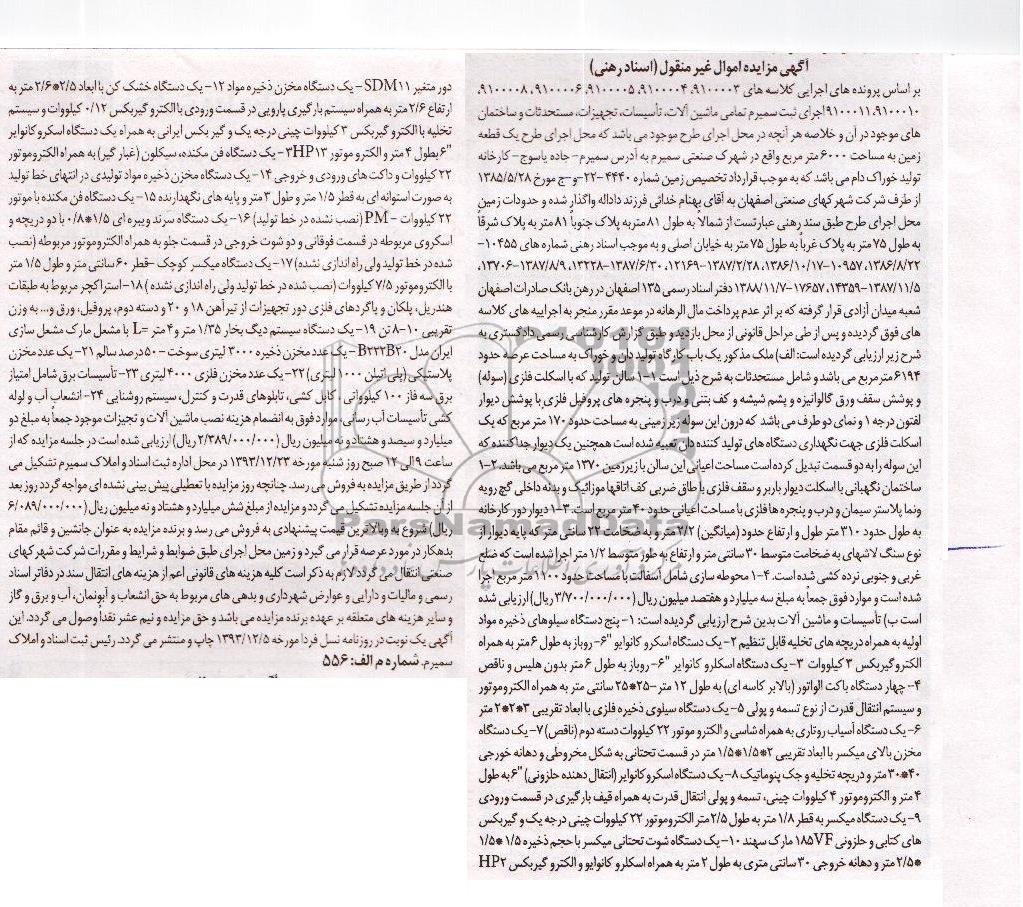 آگهی مزایده اموال غیر منقول (اسناد رهنی)
بر اساس پرونده های اجرایی کلاسه های ۹۱۰۰۰۰۳، ۹۱۰۰۰۰۴، ۹۱۰۰۰۰۵، ۹۱۰۰۰۰۶، ۹۱۰۰۰۰۸،
۹۱۰۰۰۱۰، ۹۱۰۰۰۱۱ اجرای ثبت سمیرم تمامی ماشین آلات، تأسیسات، تجهیزات، مستحدثات و ساختمان
های موجود در آن و خلاصه هر آنچه در محل اجرای طرح موجود می باشد که محل اجرای طرح یک قطعه
زمین به مساحت ۶۰۰۰ متر مربع واقع در شهرک صنعتی سمیرم به آدرس سمیرم- جاده یاسوج- کارخانه
تولید خوراک دام می باشد که به موجب قرارداد تخصیص زمین شماره ۴۴۴۰-۲۲-و-ج مورخ ۱۳۸۵/۵/۲۸
از طرف شرکت شهرکهای صنعتی اصفهان به آقای بهنام خدائی فرزند داداله واگذار شده و حدودات زمین
محل اجرای طرح طبق سند رهنی عبارتست از شمالاً به طول ۸۱ متر به پلاک جنوباً ۸۱ متر به پلاک شرقاً
به طول ۷۵ متر به پلاک غرباً به طول ۷۵ متر به خیابان اصلی و به موجب اسناد رهنی شماره های ۱۰۴۵۵-
۱۳۸۶/۸/۲۲، ۱۰۹۵۷-۱۳۸۶/۱۰/۱۷، ۱۲۱۶۹-۱۳۸۷/۲/۲۸، ۱۳۲۲۸-۱۳۸۷/۶/۳۰، ۱۳۷۰۶-۱۳۸۷/۸/۹،
۱۴۳۵۹-۱۳۸۷/۱۱/۵، ۱۷۶۵۷-۱۳۸۸/۱۱/۷ دفتر اسناد رسمی ۱۳۵ اصفهان در رهن بانک صادرات اصفهان
شعبه میدان آزادی قرار گرفته که بر اثر عدم پرداخت مال الرهانه در موعد مقرر منجر به اجراییه های کلاسه
های فوق گردیده و پس از طی مراحل قانونی از محل بازدید و طبق گزارش کارشناسی رسمی دادگستری به
شرح زیر ارزیابی گردیده است: الف) ملک مذکور یک باب کارگاه تولید دان و خوراک به مساحت عرصه حدود
۶۱۹۴ متر مربع می باشد و شامل مستحدثات به شرح ذیل است ۱-۱ سالن تولید که با اسکلت فلزی (سوله)
و پوشش سقف ورق گالوانیزه و پشم شیشه و کف بتنی و درب و پنجره های پروفیل فلزی با پوشش دیوار
لفتون درجه ۱ و نمای دو طرف می باشد که درون این سوله زیر زمینی به مساحت حدود ۱۷۰ متر مربع که یک
اسکلت فلزی جهت نگهداری دستگاه های تولید کننده دان تعبیه شده است همچنین یک دیوار جدا کننده که
این سوله را به دو قسمت تبدیل کرده است مساحت اعیانی این سالن با زیرزمین ۱۳۷۰ متر مربع می باشد. ۲-۱
ساختمان نگهبانی با اسکلت دیوار باربر و سقف فلزی با طاق ضربی کف اتاقها موزائیک و بدنه داخلی گچ رویه
و نما پلاستر سیمان و درب و پنجره ها فلزی با مساحت اعیانی حدود ۴۰ متر مربع است. ۳-۱ دیوار دور کارخانه
به طول حدود ۳۱۰ متر طول و ارتفاع حدود (میانگین) ۲/۲ متر و به ضخامت ۲۲ سانتی متر که پایه دیوار از
نوع سنگ لاشهای به ضخامت متوسط ۳۰ سانتی متر و ارتفاع به طور متوسط ۱/۲ متر اجرا شده است که ضلع
غربی و جنوبی نرده کشی شده است. ۴-۱ محوطه سازی شامل آسفالت با مساحت حدود ۱۱۰۰ متر مربع اجرا
شده است و موارد فوق جمعاً به مبلغ سه میلیارد و هفتصد میلیون ریال (۳/۷۰۰/۰۰۰/۰۰۰ ریال) ارزیابی شده
است ب) تأسیسات و ماشین آلات بدین شرح ارزیابی گردیده است: ۱- پنج دستگاه سیلوهای ذخیره مواد
اولیه به همراه دریچه های تخلیه قابل تنظیم ۲- یک دستگاه اسکرو کانوایو "۶- روباز به طول ۶ متر به همراه
الکتروگیربکس ۳ کیلووات ۳- یک دستگاه اسکلرو کانوایر "۶- روباز به طول ۶ متر بدون هلیس و ناقص
۴- چهار دستگاه باکت الواتور (بالابر کاسه ای) به طول ۱۲ متر -۲۵*۲۵ سانتی متر به همراه الکتروموتور
و سیستم انتقال قدرت از نوع تسمه و پولی ۵- یک دستگاه سیلوی ذخیره فلزی با ابعاد تقریبی ۳*۲*۲ متر
۶- یک دستگاه آسیاب روتاری به همراه شاسی و الکترو موتور ۲۲ کیلووات دسته دوم (ناقص) ۷- یک دستگاه
مخزن بالای میکسر با ابعاد تقریبی ۲*۱/۵*۱/۵ متر در قسمت تحتانی به شکل مخروطی و دهانه خروجی
۴۰*۳۰ متر و دریچه تخلیه و جک پنوماتیک ۸- یک دستگاه اسکرو کانوایر (انتقال دهنده حلزونی) "۶ به طول
۴ متر و الکتروموتور ۴ کیلووات چینی، تسمه و پولی انتقال قدرت به همراه قیف بارگیری در قسمت ورودی
۹- یک دستگاه میکسر به قطر ۱/۸ متر به طول ۲/۵ متر الکتروموتور ۲۲ کیلووات چینی درجه یک و گیربکس
های کتابی و حلزونی ۱۸۵VF مارک سهند ۱۰- یک دستگاه شوت تحتانی میکسر با حجم ذخیره ۱/۵*۱/۵
*۲/۵ متر و دهانه خروجی ۳۰ سانتی متری به طول ۲ متر به همراه اسکلرو کانوایو و الکترو گیربکس HP۲
دور متغیر SDM۱۱ - یک دستگاه مخزن ذخیره مواد ۱۲- یک دستگاه خشک کن با ابعاد ۲/۵*۲/۶ متر به
ارتفاع ۲/۶ متر به همراه سیستم بارگیری پارویی در قسمت ورودی با الکترو گیربکس ۰/۱۲ کیلووات و سیستم
تخلیه با الکترو گیربکس ۳ کیلووات چینی درجه یک و گیر بکس ایرانی به همراه یک دستگاه اسکرو کانوایر
"۶ بطول ۴ متر و الکترو موتور ۳HP۱۳- یک دستگاه فن مکنده، سیکلون (غبار گیر) به همراه الکتروموتور
۲۲ کیلووات و داکت های ورودی و خروجی ۱۴- یک دستگاه ذخیره مواد تولیدی در انتهای خط تولید
به صورت استوانه ای به قطر ۱/۵ متر و طول ۳ متر و پایه های نگهدارنده ۱۵- یک دستگاه فن مکنده با موتور
۲۲ کیلووات - PM (نصب نشده در خط تولید) ۱۶- یک دستگاه سرند ویبره ای ۱/۵*۰/۸ با دو دریچه و
اسکروی مربوطه در قسمت فوقانی و دو شوت خروجی در قسمت جلو به همراه الکتروموتور مربوطه (نصب
شده در خط تولید ولی راه اندازی نشده) ۱۷- یک دستگاه میکسر کوچک -قطر ۶۰ سانتی متر و طول ۱/۵ متر
با الکتروموتور ۷/۵ کیلووات (نصب شده در خط تولید ولی راه اندازی نشده ) ۱۸- استراکچر مربوط به طبقات
هندریل، پلکان و پاگردهای فلزی دور تجهیزات از تیرآهن ۱۸ و ۲۰ و دسته دوم، پروفیل، ورق و... به وزن
تقریبی ۱۰-۸ تن ۱۹- یک دستگاه سیستم دیگ بخار ۱/۳۵ متر و ۴ متر =L با مشعل مارک مشعل سازی
ایران مدل B۲۳۲B۲۰ - یک عدد مخزن ذخیره ۳۰۰۰ لیتری سوخت - ۵۰ درصد سالم ۲۱- یک عدد مخزن
پلاستیکی (پلی اتیلن ۱۰۰۰ لیتری) ۲۲- یک عدد مخزن فلزی ۴۰۰۰ لیتری ۲۳- تأسیسات برق شامل امتیاز
برق سه فاز ۱۰۰ کیلوواتی، کابل کشی، تابلوهای قدرت و کنترل، سیستم روشنایی ۲۴- انشعاب آب و لوله
کشی تأسیسات آب رسانی، موارد فوق به انضمام هزینه نصب ماشین آلات و تجیزات موجود جمعاً به مبلغ دو
میلیارد و سیصد و هشتاد و نه میلیون ریال (۲/۳۸۹/۰۰۰/۰۰۰ ریال) ارزیابی شده است در جلسه مزایده که از
ساعت ۹ الی ۱۲ صبح روز شنبه مورخه ۱۳۹۳/۱۲/۲۳ در محل اداره ثبت اسناد و املاک سمیرم تشکیل می
گردد از طریق مزایده به فروش می رسد. چنانچه روز مزایده با تعطیلی پیش بینی نشده ای مواجه گردد روز بعد
از آن جلسه مزایده تشکیل می گردد و مزایده از مبلغ شش میلیارد و هشتاد و نه میلیون ریال (۶/۰۸۹/۰۰۰/۰۰۰
ریال) شروع و به بالاترین قیمت پیشنهادی به فروش می رسد و برنده مزایده به عنوان جانشین و قائم مقام
بدهکار در مورد عرصه قرار می گیرد و زمین محل اجرای طبق ضوابط و شرایط و مقررات شرکت شهرکهای
صنعتی انتقال می گردد لازم به ذکر است کلیه هزینه های قانونی اعم از هزینه های انتقال سند در دفاتر اسناد
رسمی و مالیات و دارایی و عوارض شهرداری و بدهی های مربوط به حق انشعاب و آبونمان، آب و برق و گاز
و سایر هزینه های متعلقه بر عهده برنده مزایده می باشد و حق مزایده و نیم عشر نقداً وصول می گردد. این
آگهی یک نوبت در روزنامه نسل فردا مورخه ۱۳۹۳/۱۲/۵ چاپ و منتشر می گردد. رئیس ثبت اسناد و املاک
سمیرم. شماره م الف: ۵۵۶
ParsNamadData